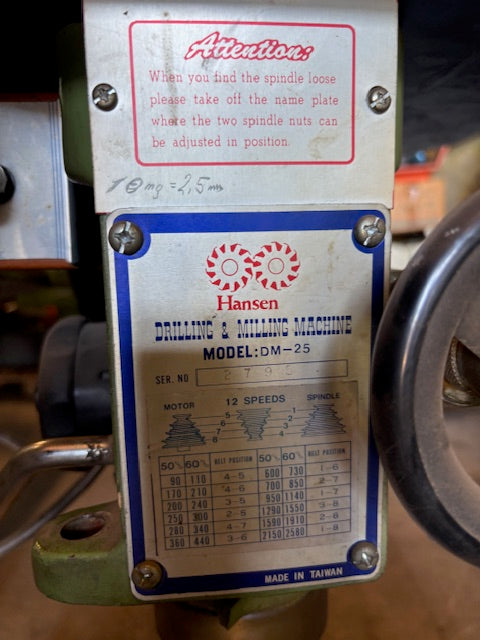 Attention:
When you find the spindle loose
please take off the name plate
where the two spindle nuts can
be adjusted in position.
mg = 2,5 mm
Hansen
DRILLING & MILLING MACHINE
MODEL: DM-25
SER. NO 2 7 9
MOTOR 12 SPEEDS SPINDLE
5 6 7 8 1 2 3 4
50∿ 60∿ BELT POSITION 50∿ 60∿ BELT POSITION
90 110 4-5 600 730 1-6
170 210 4-6 700 850 2-7
200 240 3-5 950 1140 1-7
250 300 2-5 1290 1550 3-8
280 340 4-7 1590 1910 2-8
360 440 3-6 2150 2580 1-8
MADE IN TAIWAN